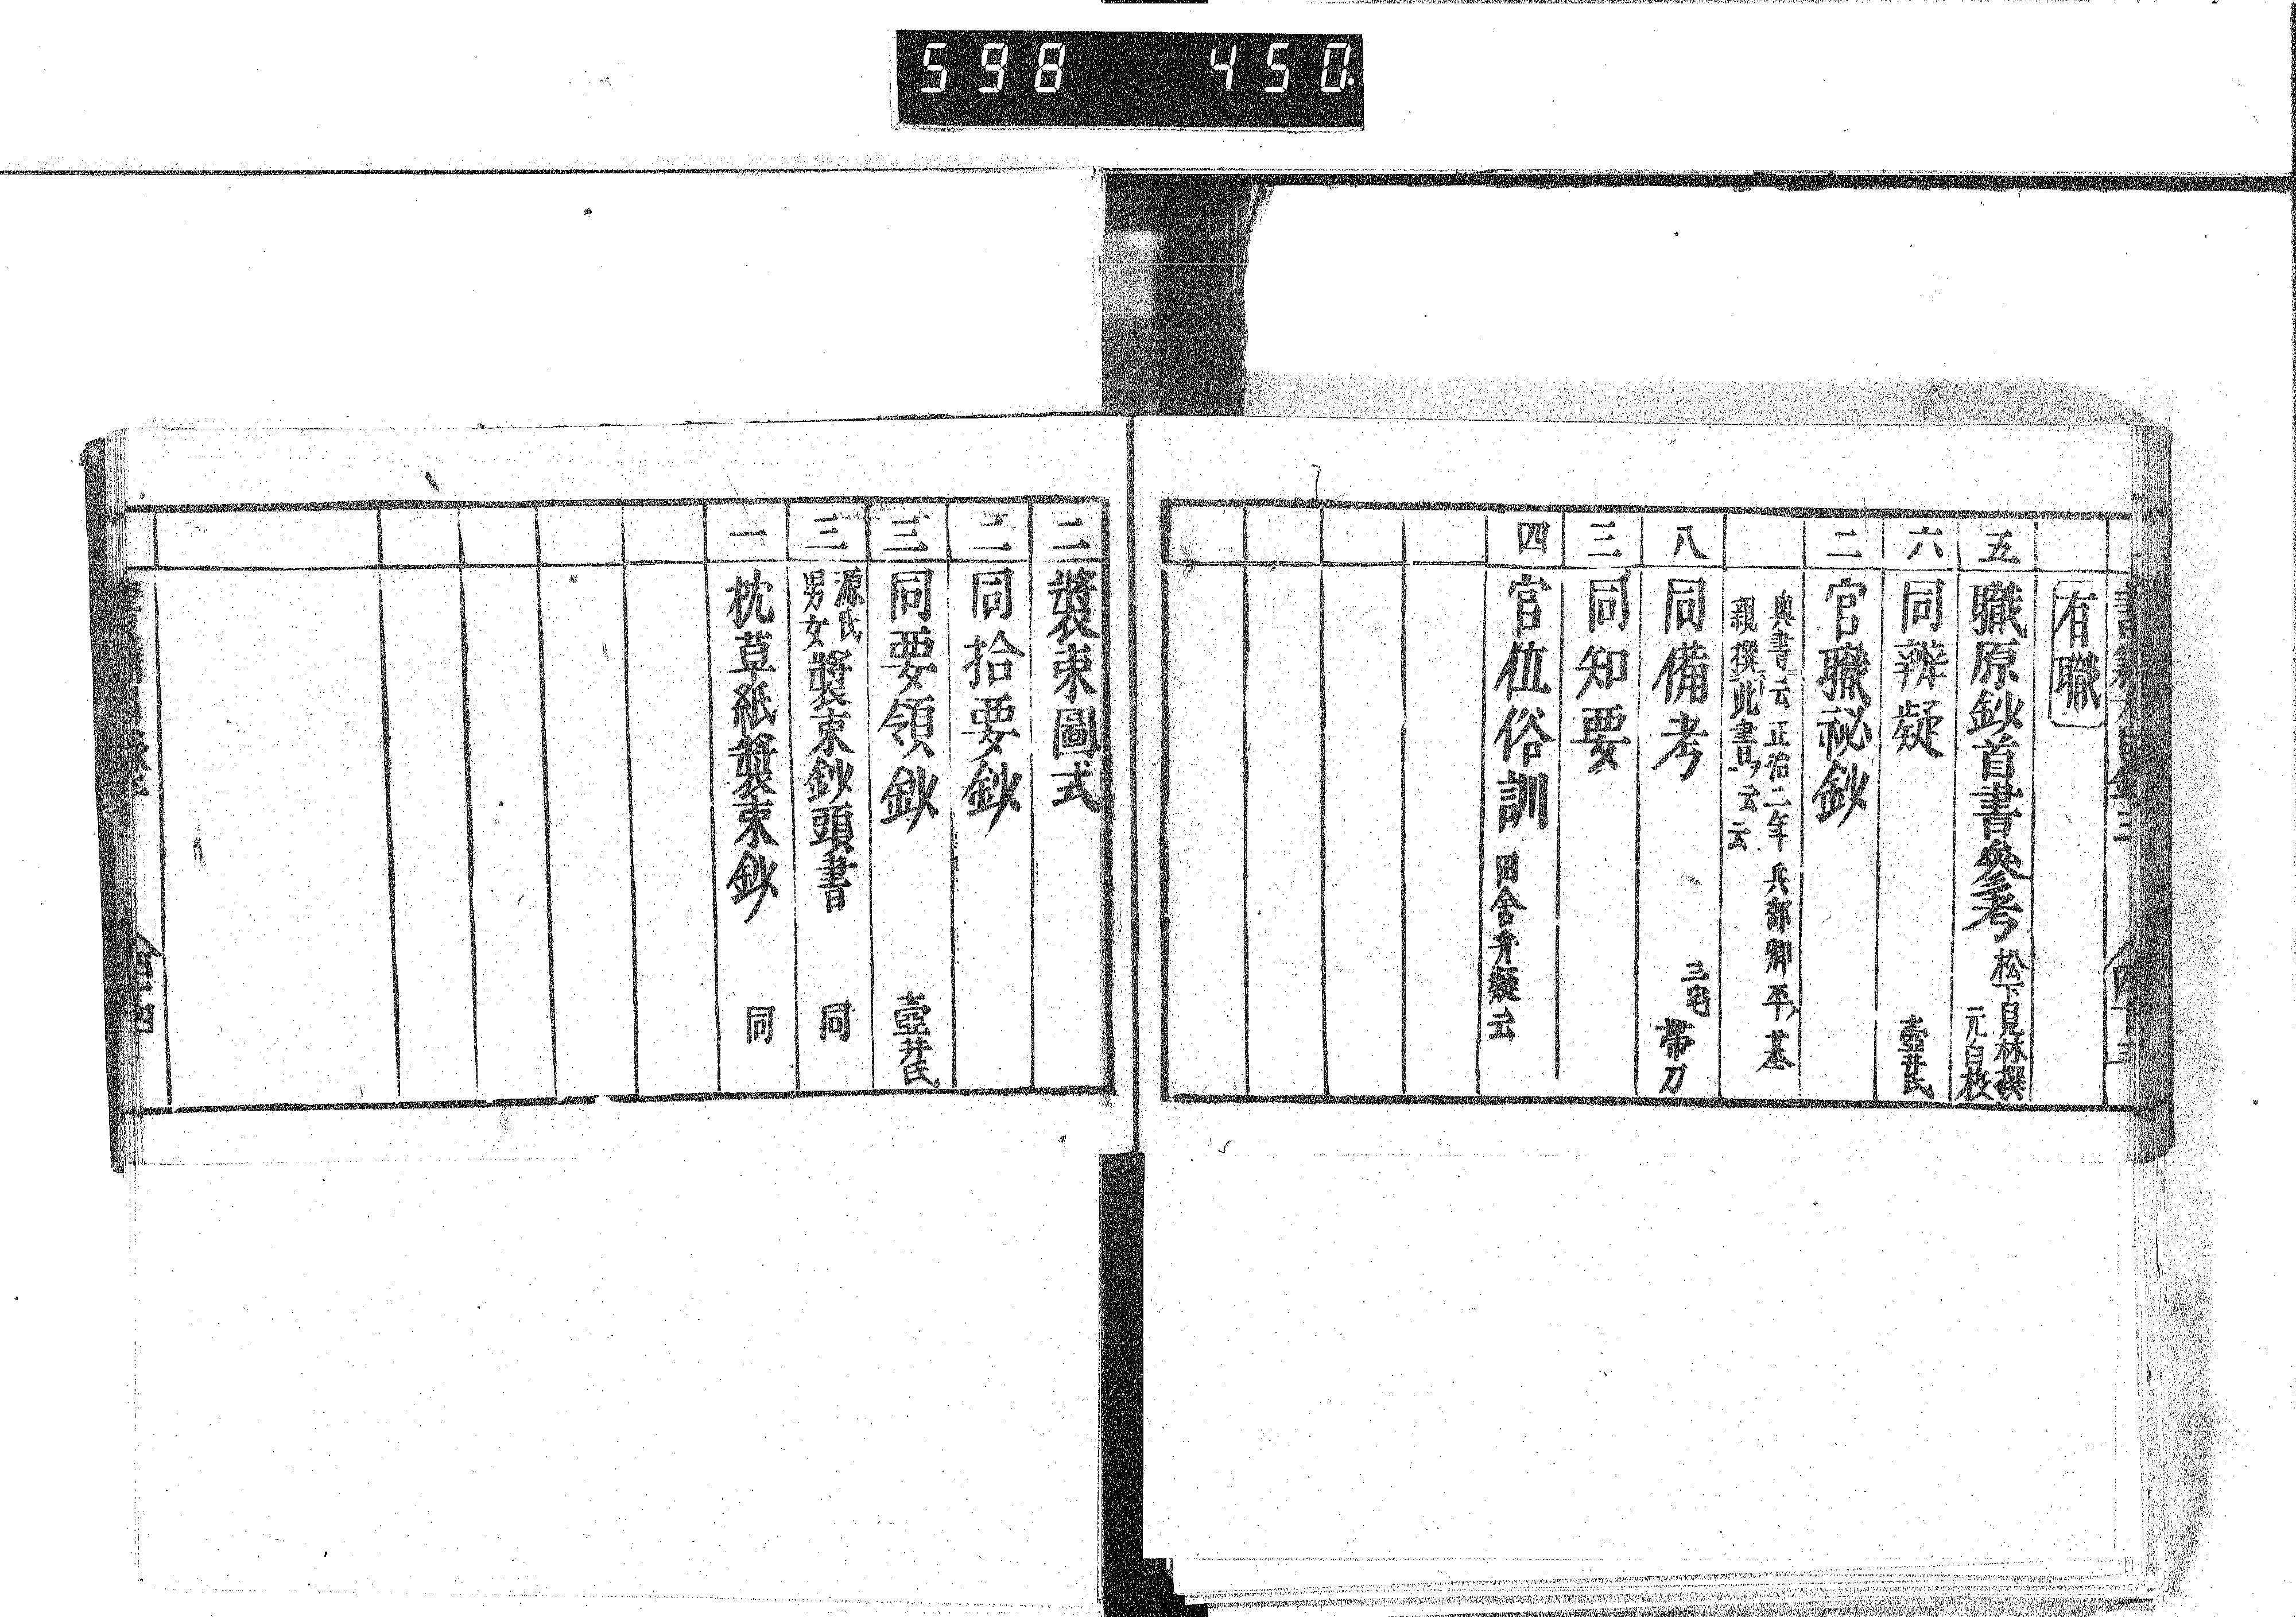 598 450
有職
五 職原鈔首書參考 松下見林撰 元自校
六 同辨疑 壺井氏
二 官職祕鈔
奥書云正治二年兵部卿平基
親撰此書云云
八 同備考 三宅帶刀
三 同知要
四 官位俗訓 田舍介疑云
二 裝束圖式
二 同拾要鈔
三 同要領鈔 壺井氏
三 源氏男女裝束鈔頭書 同
一 枕草紙裝束鈔 同